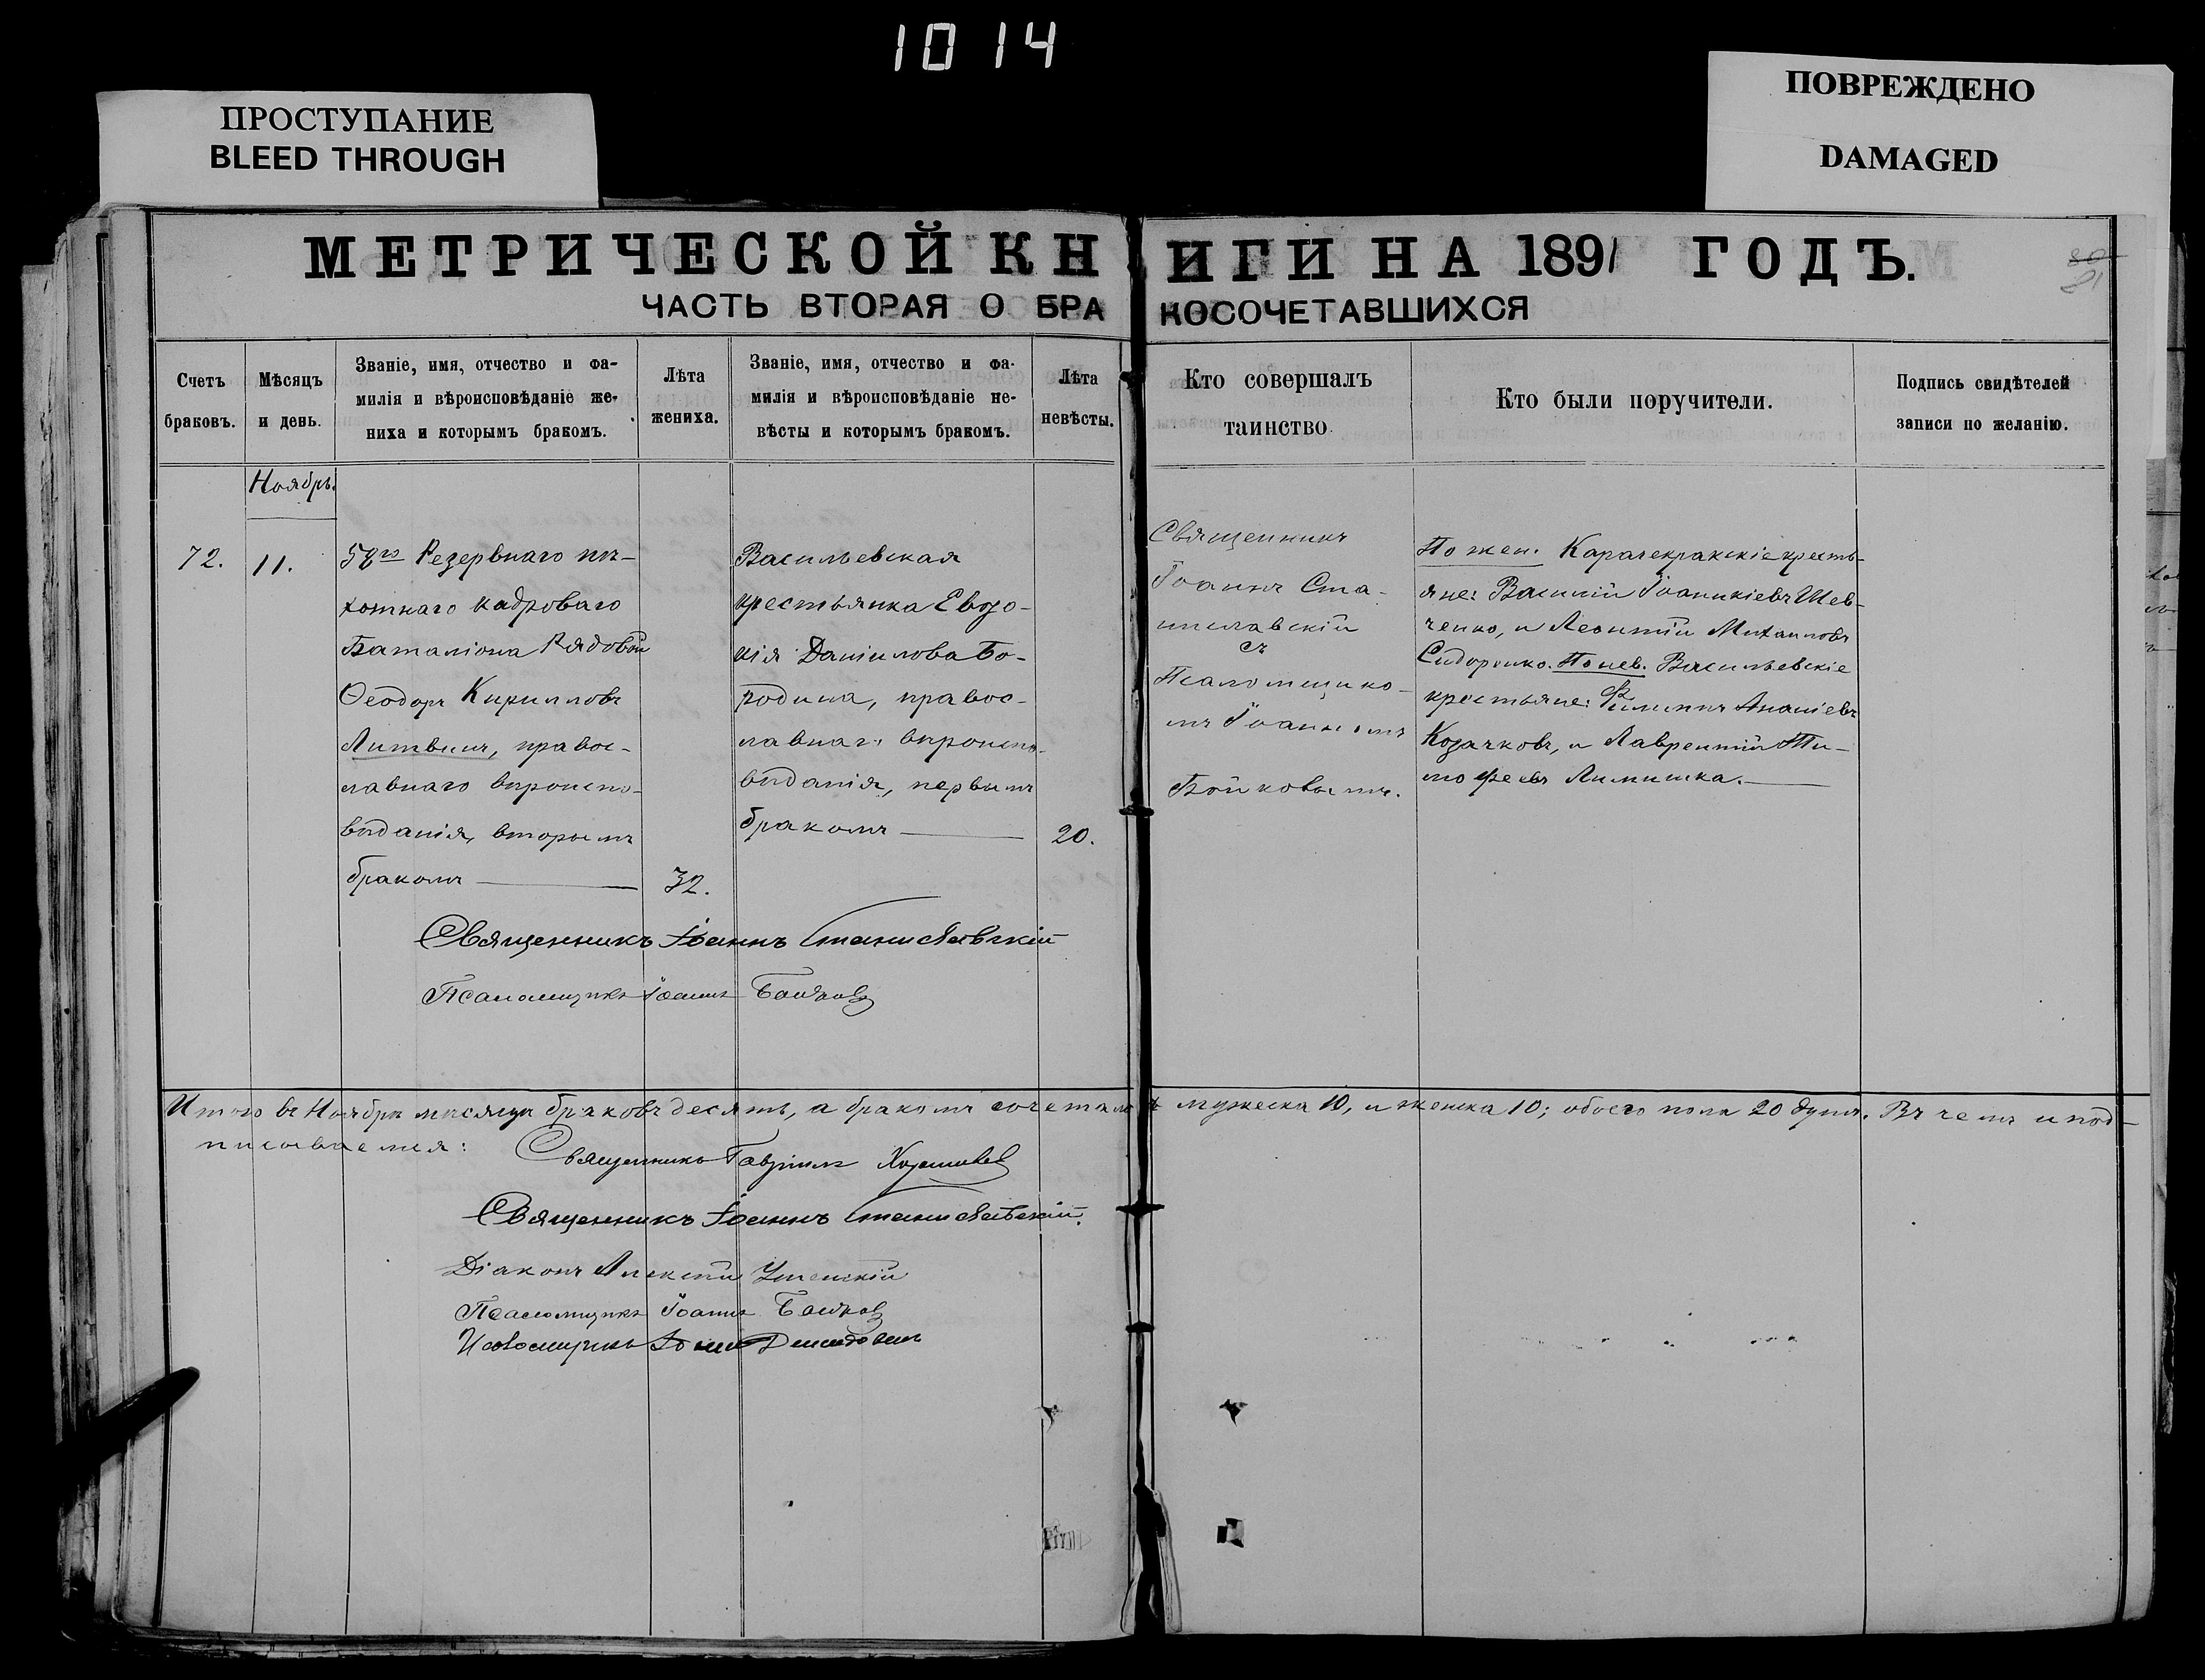 1014
ПРОСТУПАНИЕ
BLEED THROUGH
ПОВРЕЖДЕНО
DAMAGED
МЕТРИЧЕСКОЙ КНИГИ НА 1891 ГОДЪ.
ЧАСТЬ ВТОРАЯ О БРАКОСОЧЕТАВШИХСЯ
Счетъ
браковъ.
Мѣсяцъ
и день.
Званіе, имя, отчество и фа-
милія и вѣроисповѣданіе же-
ниха и которымъ бракомъ.
Лѣта
жениха.
Званіе, имя, отчество и фа-
милія и вѣроисповѣданіе не-
вѣсты и которымъ бракомъ.
Лѣта
невѣсты.
Кто совершалъ
таинство.
Кто были поручители.
Подпись свидѣтелей
записи по желанію.
Ноябрь.
72.
11.
58го Резервнаго пѣ-
хотнаго кадроваго
Баталіона Рядовой
Ѳеодоръ Кирилловъ
Литвинъ, правос-
лавнаго вѣроиспо-
вѣданія, вторымъ
бракомъ
32.
Васильевская
крестьянка Евдо-
кія Даніилова Бо-
родина, правос-
лавнаго вѣроиспо-
вѣданія, первымъ
бракомъ
20.
Священникъ
Іоаннъ Ста-
ниславскій
съ
Псаломщико-
мъ Іоанномъ
Бойковымъ.
По жен. Карачекракскіе кресть-
яне: Василій Іоаникіевъ Шев-
ченко, и Леонтій Михаиловъ
Сидоренко. По нев. Васильевскіе
крестьяне: Филиппъ Ананіевъ
Козачковъ, и Лаврентій Ти-
мофеевъ Лимишка.
Священникъ Іоаннъ Станиславскій
Псаломщикъ Іоаннъ Бойковъ
Итого въ Ноябрѣ мѣсяцѣ браковъ десять, а бракомъ сочеталось мужеска 10, и женска 10; обоего пола 20 душъ. Въ чемъ и под-
писываемся:
Священникъ Гавріилъ
Священникъ Іоаннъ Станиславскій.
Діаконъ Алексѣй
Псаломщикъ Іоаннъ Бойковъ
Псаломщикъ